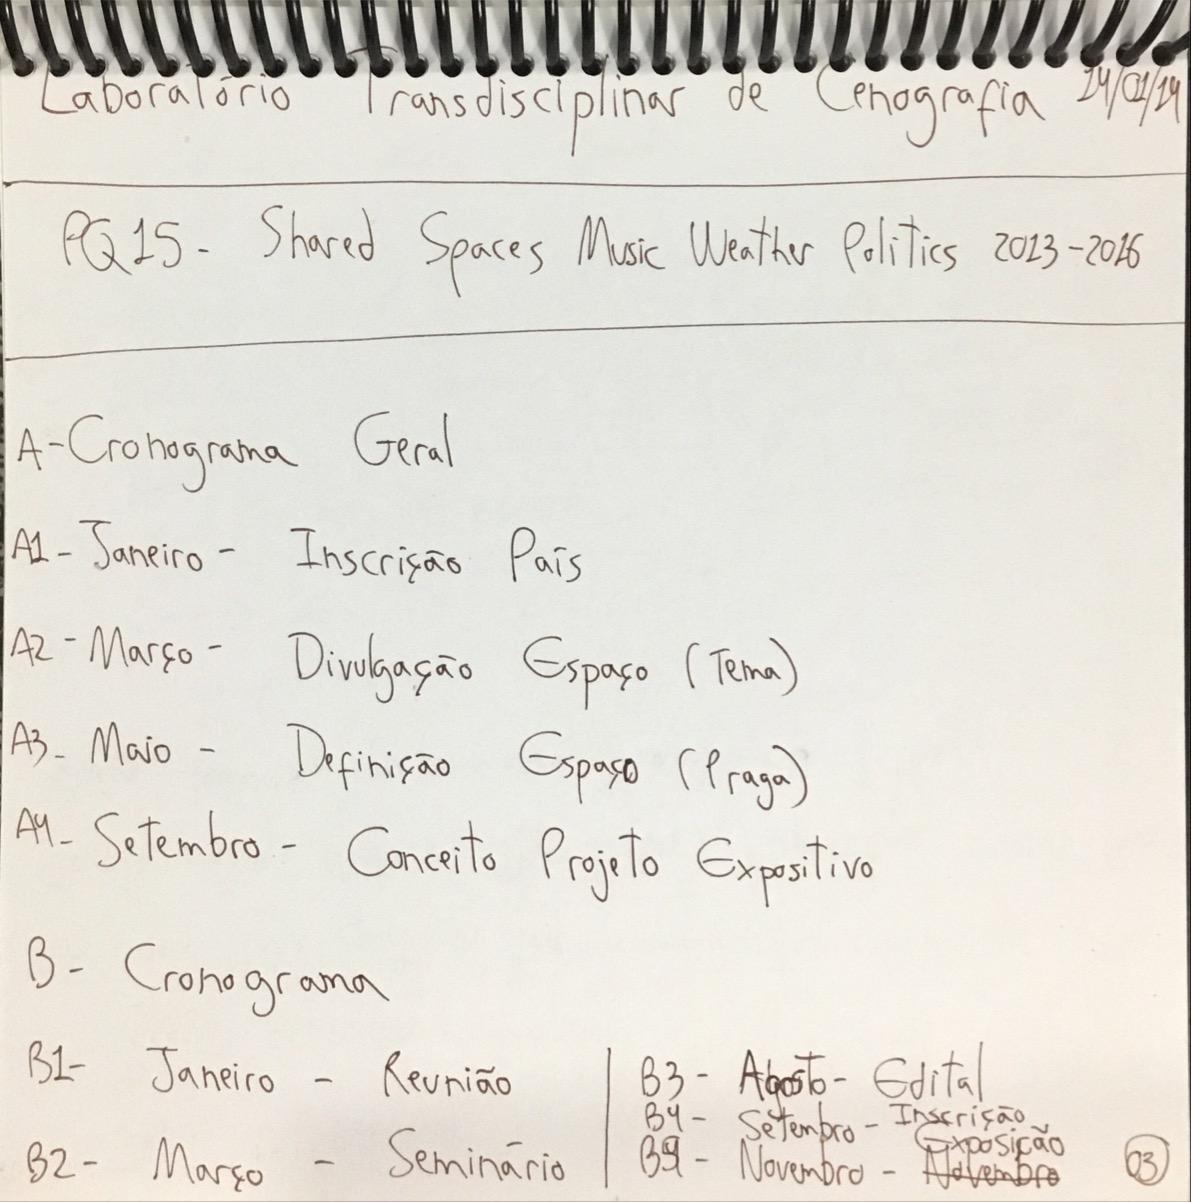 Laboratório Transdisciplinar de Cenografia 14/01/14
PQ15 - Shared Spaces Music Weather Politics 2013-2016
A - Cronograma Geral
A1 - Janeiro - Inscrição País
A2 - Março - Divulgação Espaço (Tema)
A3 - Maio - Definição Espaço (Praga)
A4 - Setembro - Conceito Projeto Expositivo
B - Cronograma
B1 - Janeiro - Reunião
B2 - Março - Seminário
B3 - Agosto - Edital
B4 - Setembro - Inscrição
Exposição
Novembro - Novembro
03